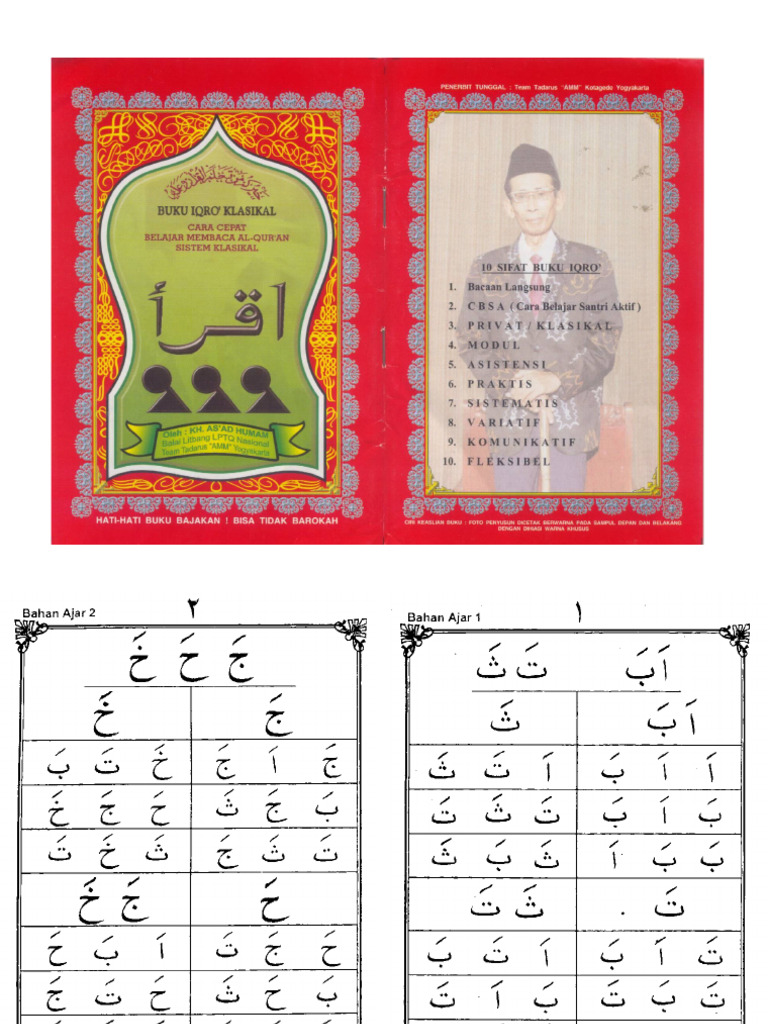 BUKU IQRO' KLASIKAL
CARA CEPAT
BELAJAR MEMBACA AL-QUR'AN
SISTEM KLASIKAL
اقرأ
Oleh : KH. AS'AD HUMAM
Balai Litbang LPTQ Nasional
Team Tadarus "AMM" Yogyakarta
HATI-HATI BUKU BAJAKAN ! BISA TIDAK BAROKAH
PENERBIT TUNGGAL : Team Tadarus "AMM" Kotagede Yogyakarta
10 SIFAT BUKU IQRO'
1. Bacaan Langsung
2. C B S A ( Cara Belajar Santri Aktif )
3. P R I V A T / K L A S I K A L
4. M O D U L
5. A S I S T E N S I
6. P R A K T I S
7. S I S T E M A T I S
8. V A R I A T I F
9. K O M U N I K A T I F
10. F L E K S I B E L
CIRI KEASLIAN BUKU : FOTO PENYUSUN DICETAK BERWARNA PADA SAMPUL DEPAN DAN BELAKANG
DENGAN DIHIASI WARNA KHUSUS
Bahan Ajar 1
١
اَ بَ تَ ثَ
اَ بَ ثَ
اَ اَ بَ اَ تَ ثَ
بَ اَ بَ تَ ثَ تَ
بَ بَ اَ ثَ بَ ثَ
تَ ثَ تَ
تَ اَ بَ اَ تَ بَ
تَ بَ تَ بَ اَ تَ
Bahan Ajar 2
٢
جَ حَ خَ
جَ خَ
جَ اَ جَ خَ تَ بَ
بَ جَ ثَ حَ جَ خَ
تَ ثَ جَ ثَ خَ تَ
حَ جَ خَ
حَ جَ تَ اَ بَ حَ
بَ حَ ثَ حَ تَ جَ